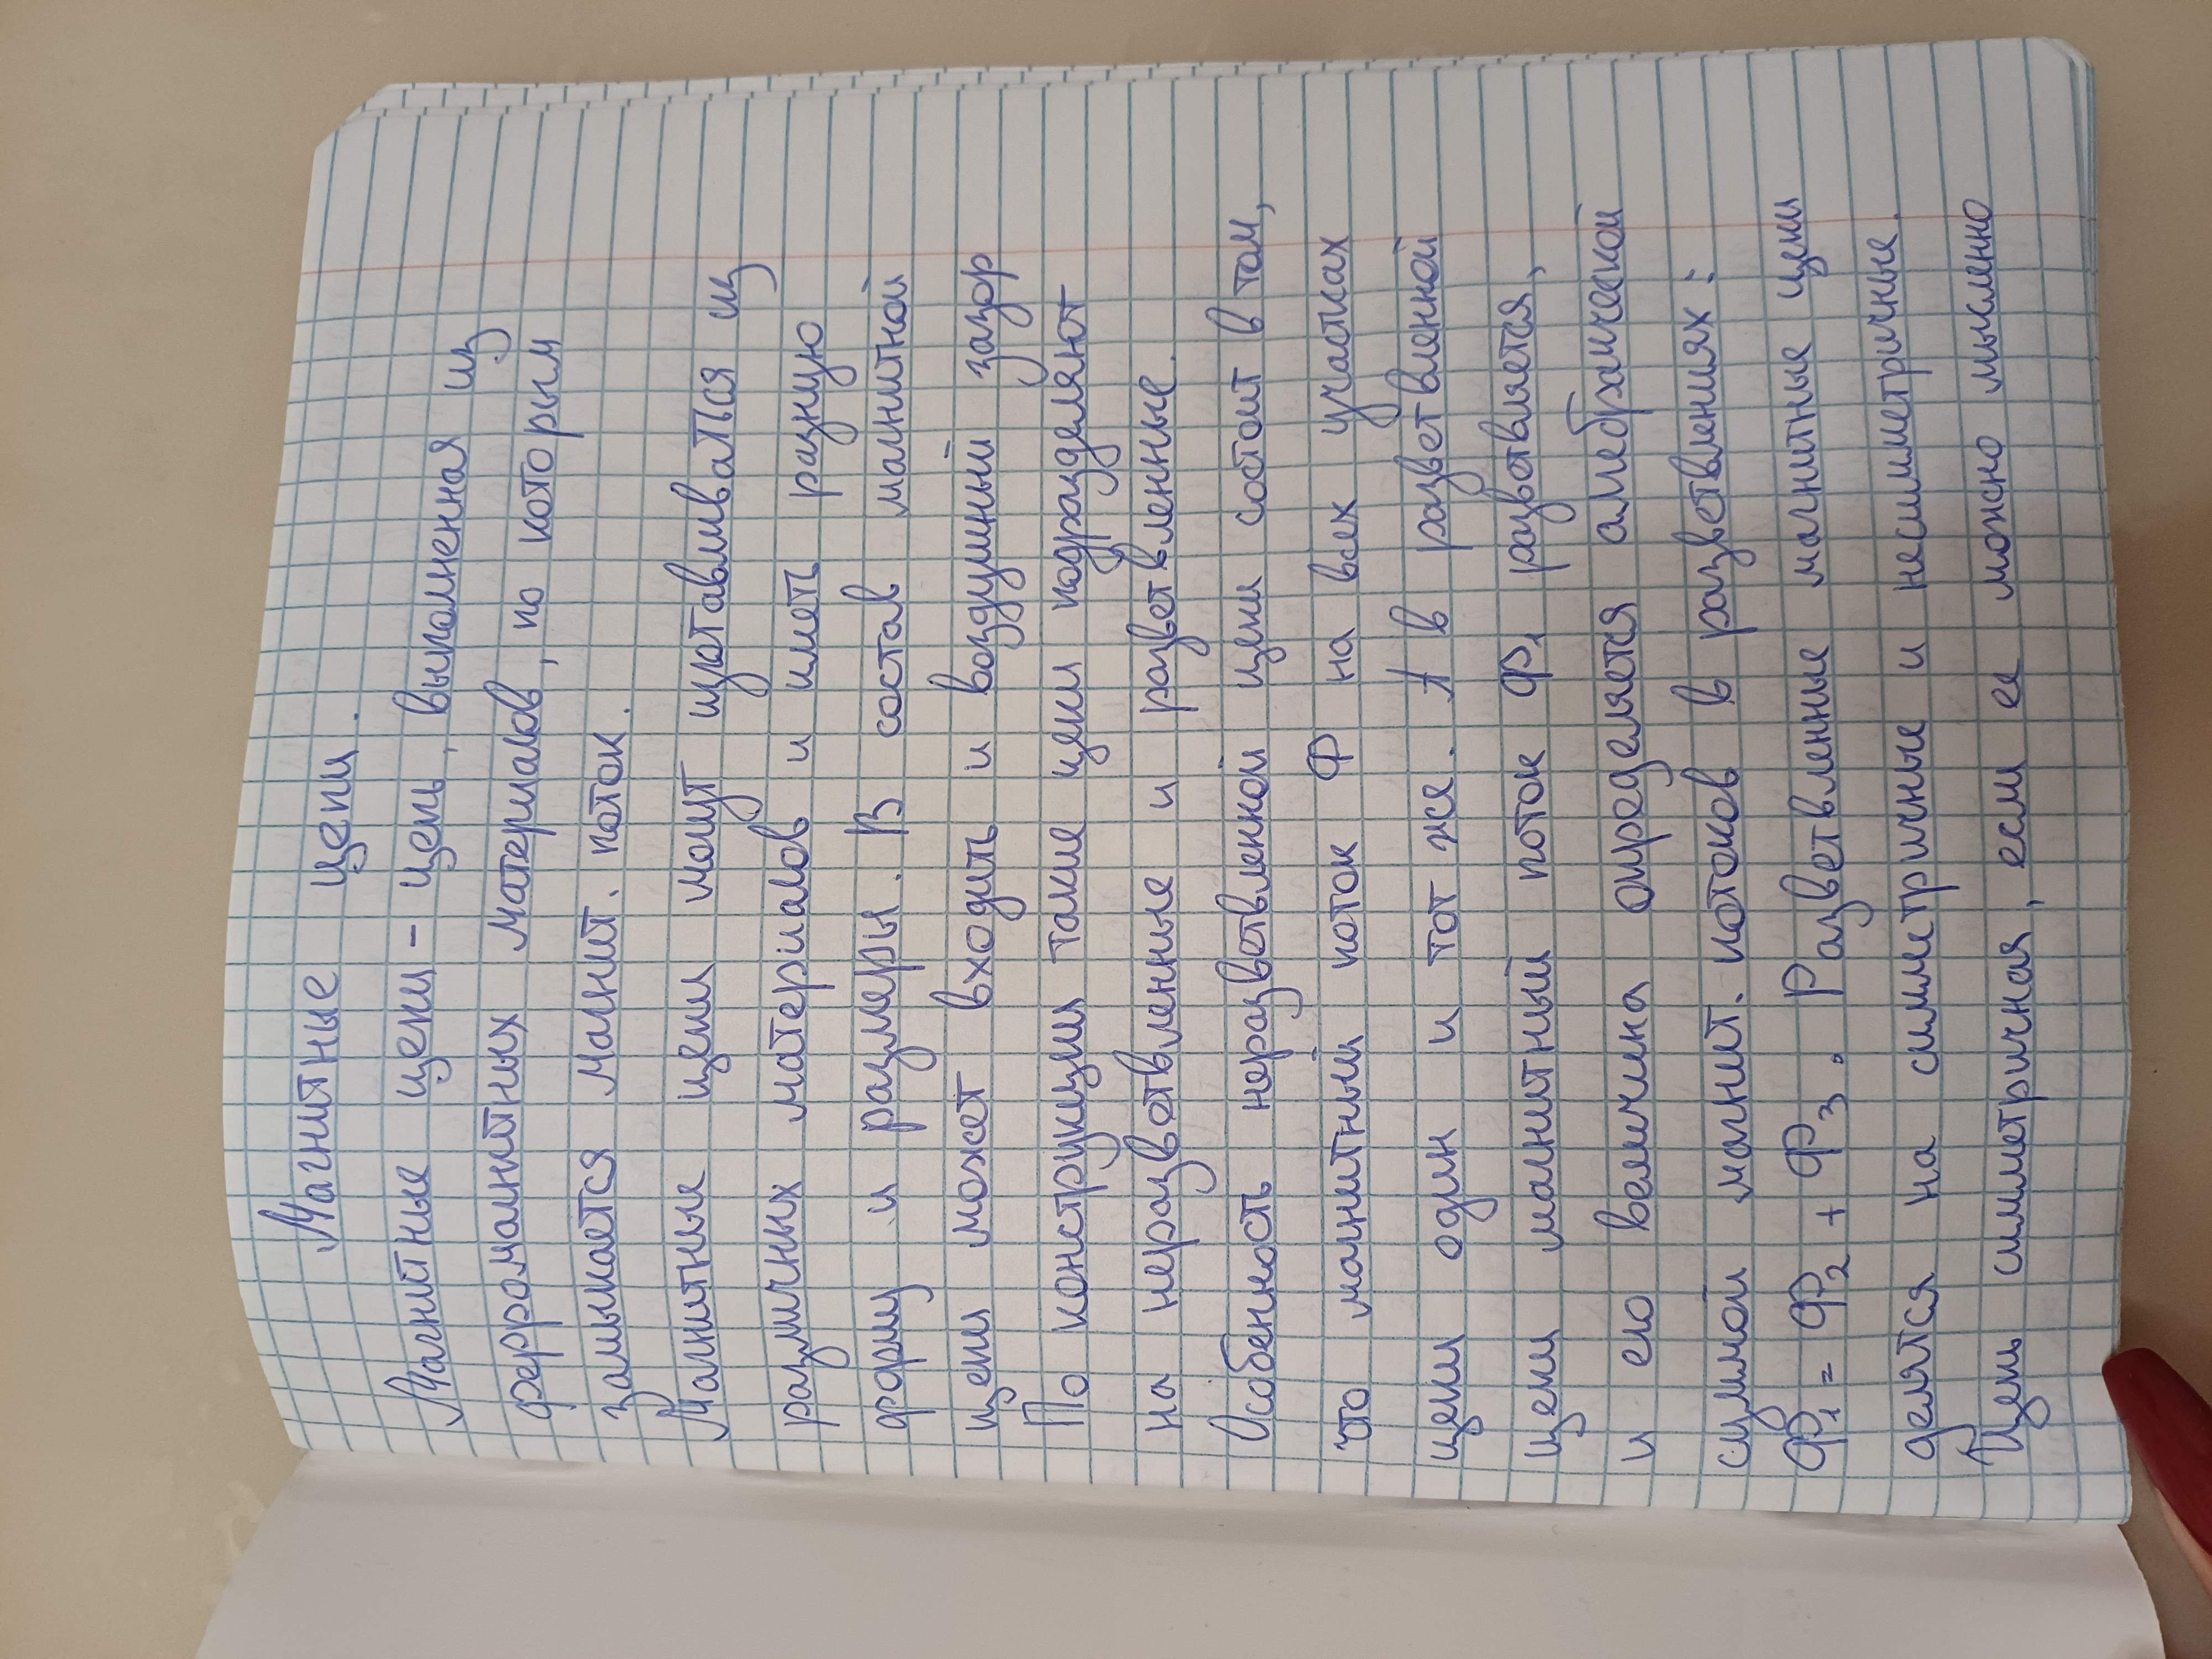 Магнитные цепи.
Магнитные цепи - цепь, выполненная из
ферромагнитных материалов, по которым
замыкается магнит. поток.
Магнитные цепи могут изготавливаться из
различных материалов и иметь разную
форму и размеры. В состав магнитной
цепи может входить и воздушный зазор
По конструкции такие цепи подразделяют
на неразветвленные и разветвленные.
Особенность неразветвленной цепи состоит в том,
что магнитный поток Ф на всех участках
цепи один и тот же. А в разветвленной
цепи магнитный поток Ф₁ разветвляется,
и его величина определяется алгебраической
суммой магнит. потоков в разветвлениях:
Ф₁ = Ф₂ + Ф₃. Разветвленные магнитные цепи
делятся на симметричные и несимметричные.
Цепь симметричная, если ее можно мысленно